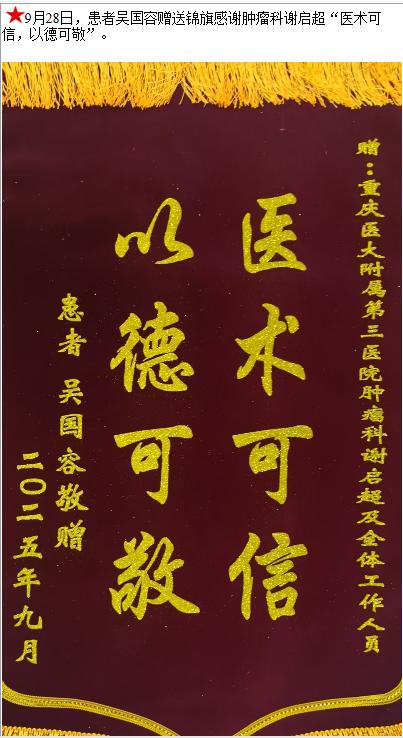 ★9月28日，患者吴国容赠送锦旗感谢肿瘤科谢启超“医术可
信，以德可敬”。
赠：重庆医大附属第三医院肿瘤科谢启超及全体工作人员
医术可信
以德可敬
患者 吴国容敬赠
二〇二五年九月